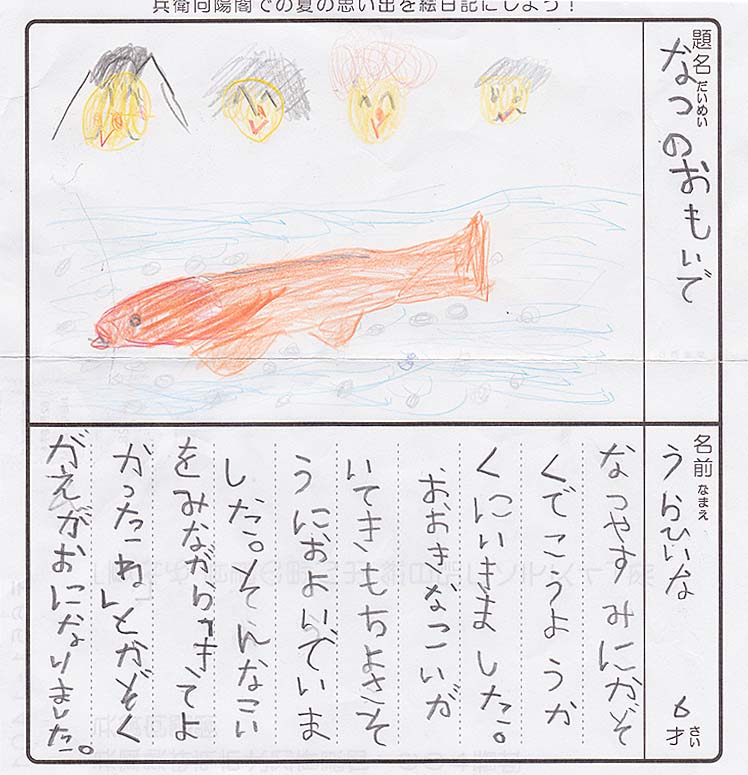 兵衛向陽閣での夏の思い出を絵日記にしよう！
題名 だいめい
なつのおもいで
名前 なまえ
うらひいな 6才 さい
なつやすみにかぞ
くでこうようか
くにいきました。
おおきなこいが
いてきもちよさそ
うにおよいでいま
した。そんなこい
をみながら「きてよ
かったね」とかぞく
がえがおになりました。